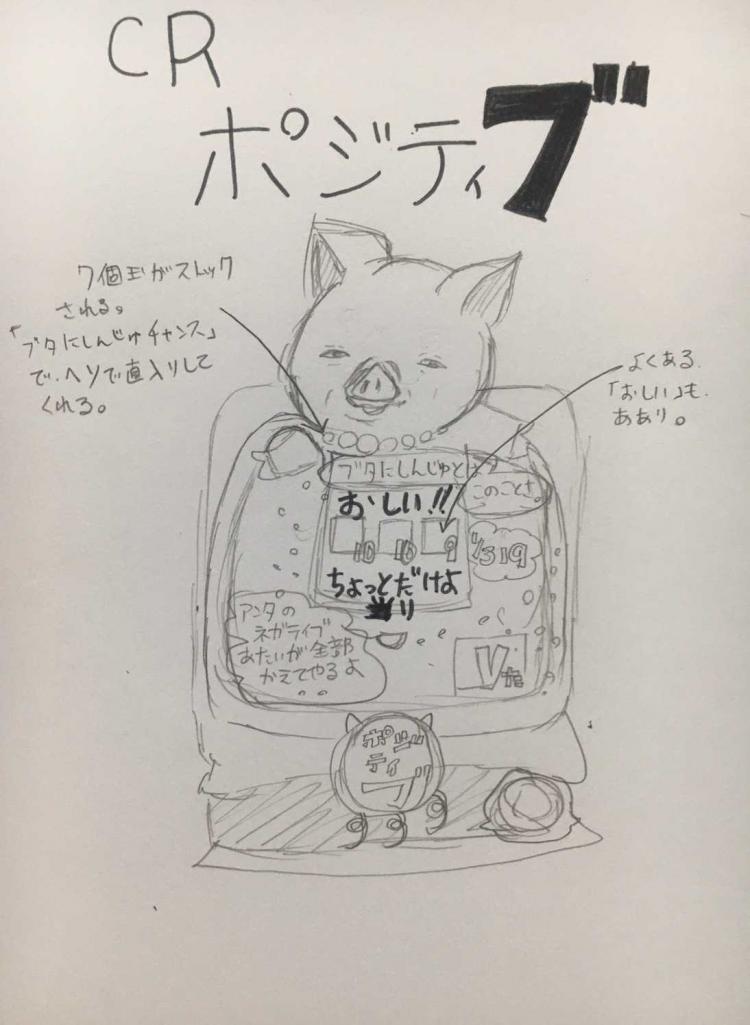 CR
ポジティブ
7個玉がストック
される。
「ブタにしんじゅチャンス」
で、ヘソで直入りして
くれる。
よくある
「おしい」も
ああり。
ブタにしんじゅとは
このことさ。
おしい!!
10 10 9
1/319
ちょっとだけよ
当り
アンタの
ネガティブ
あたいが全部
かえてやるよ
V
ポジ
ティ
ブ